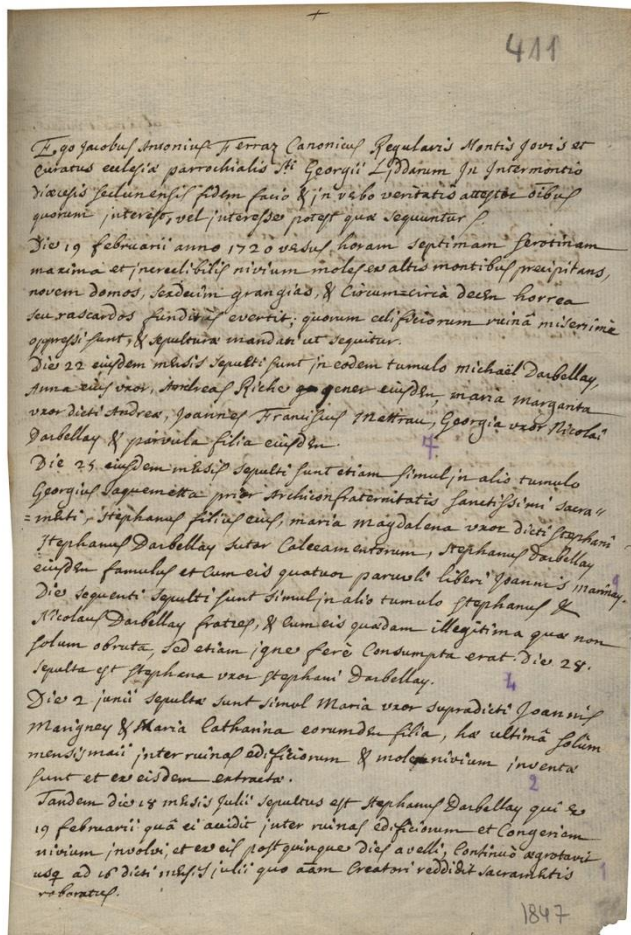 +
411
Ego Jacobus Antonius Ferraz Canonicus Regularis Montis Jovis et
Curatus eclesiæ parrochialis Sti Georgii Lyddarum In Intermontio
diæcesis sedunensis fidem facio & jn verbo veritatis attestor oibus
quorum interest, vel interesse potest quæ sequuntur
Die 19 februarii anno 1720 versus horam septimam serotinam
maxima et jncredibilis nivium moles ex altis montibus precipitans,
novem domos, sexdecim grangias, & Circum=circà decem horrea
seu rascardos funditus evertit, quorum edificiorum ruinâ miserrimè
oppressi sunt, & sepulturæ mandati ut sequitur.
Die 22 ejusdem mensis sepulti sunt jn eodem tumulo michaël Darbellay,
Anna ejus vxor, Andreas Riche gener eiusdem, maria Margarita
vxor dicti Andreæ, Joannes Franciscus Mettrau, Georgia vxor Nicolai
Darbellay & parvula filia eiusdem.
7.
Die 25 eiusdem mensis sepulti sunt etiam simul jn alio tumulo
Georgius Jaquemetta prior Archiconfraternitatis sanctissimi sacra=
=menti, Stephanus filius eius, maria Magdalena vxor dicti Stephani
Stephanus Darbellay sutor Calceamentorum, Stephanus Darbellay
eiusdem famulus et Cum eis quatuor paruuli liberi Joannis Maringney.
9
Die sequenti sepulti sunt simul jn alio tumulo Stephanus &
Nicolaus Darbellay fratres, & Cum eis quædam illegitima quæ non
solum obruta, sed etiam jgne ferè Consumpta erat. Die 28.
sepulta est Stephana vxor Stephani Darbellay.
4
Die 2 junii sepultæ sunt simul Maria vxor supradicti Joannis
Marigney & Maria Catharina eorumdem filia, hæ ultimâ solùm
mensis maii jnter ruinas edificiorum & molem nivium inventæ
sunt et ex eisdem extractæ.
2
Tandem die 18 mensis Julii sepultus est Stephanus Darbellay qui
19 februarii quâ ei accidit jnter ruinas edificiorum et Congeriem
nivium jnvolvi, et ex eis post quinque dies avelli, Continuò ægrotavit
usq ad 16 dicti mensis julii quo aãm Creatori reddidit sacramentis
roboratus.
1
1847